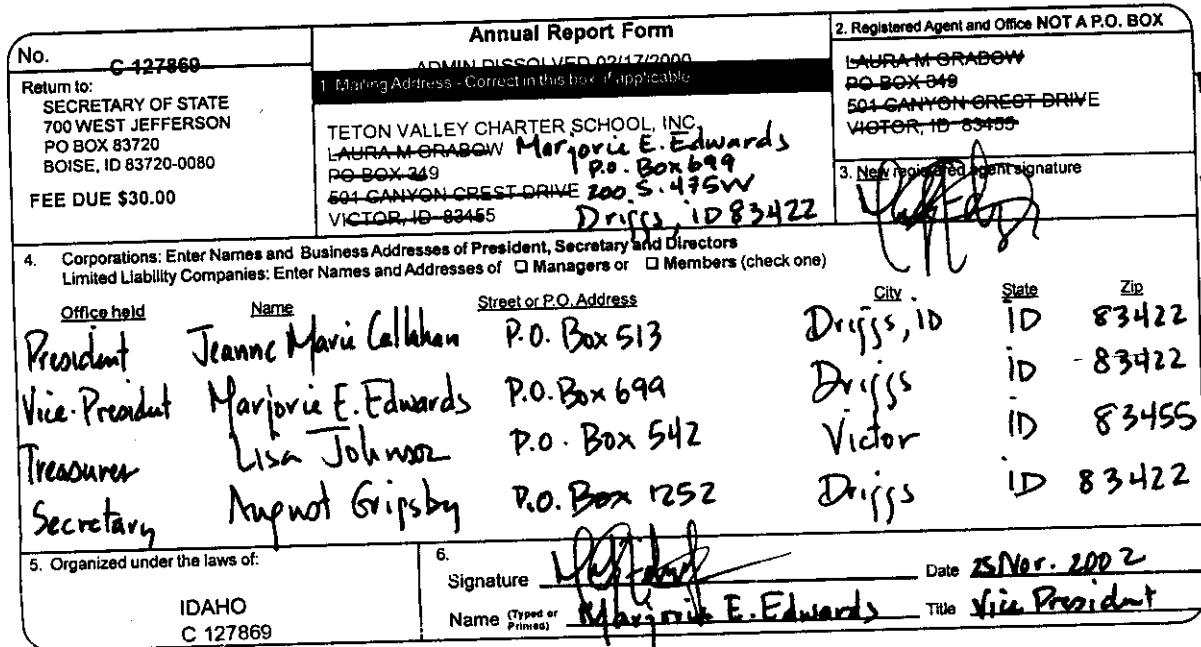 No. C 127869
Return to:
SECRETARY OF STATE
700 WEST JEFFERSON
PO BOX 83720
BOISE, ID 83720-0080
FEE DUE $30.00
Annual Report Form
ADMIN DISSOLVED 02/17/2000
1. Mailing Address - Correct in this box if applicable
TETON VALLEY CHARTER SCHOOL, INC.
LAURA M GRABOW Marjorie E. Edwards
PO BOX 349 P.O. Box 699
501 CANYON CREST DRIVE 200 S. 475W
VICTOR, ID 83455 Driggs, iD 83422
2. Registered Agent and Office NOT A P.O. BOX
LAURA M GRABOW
PO BOX 349
501 CANYON CREST DRIVE
VICTOR, ID 83455
3. New registered agent signature
4. Corporations: Enter Names and Business Addresses of President, Secretary and Directors
Limited Liability Companies: Enter Names and Addresses of ☐ Managers or ☐ Members (check one)
Office held Name Street or P.O. Address City State Zip
President Jeanne Marie Callahan P.O. Box 513 Driggs, iD iD 83422
Vice-President Marjorie E. Edwards P.O. Box 699 Driggs iD 83422
Treasurer Lisa Johnson P.O. Box 542 Victor iD 83455
Secretary P.O. Box 1252 Driggs iD 83422
5. Organized under the laws of:
IDAHO
C 127869
6.
Signature Date 25 Nov. 2002
Name (Typed or Printed) Marjorie E. Edwards Title Vice President